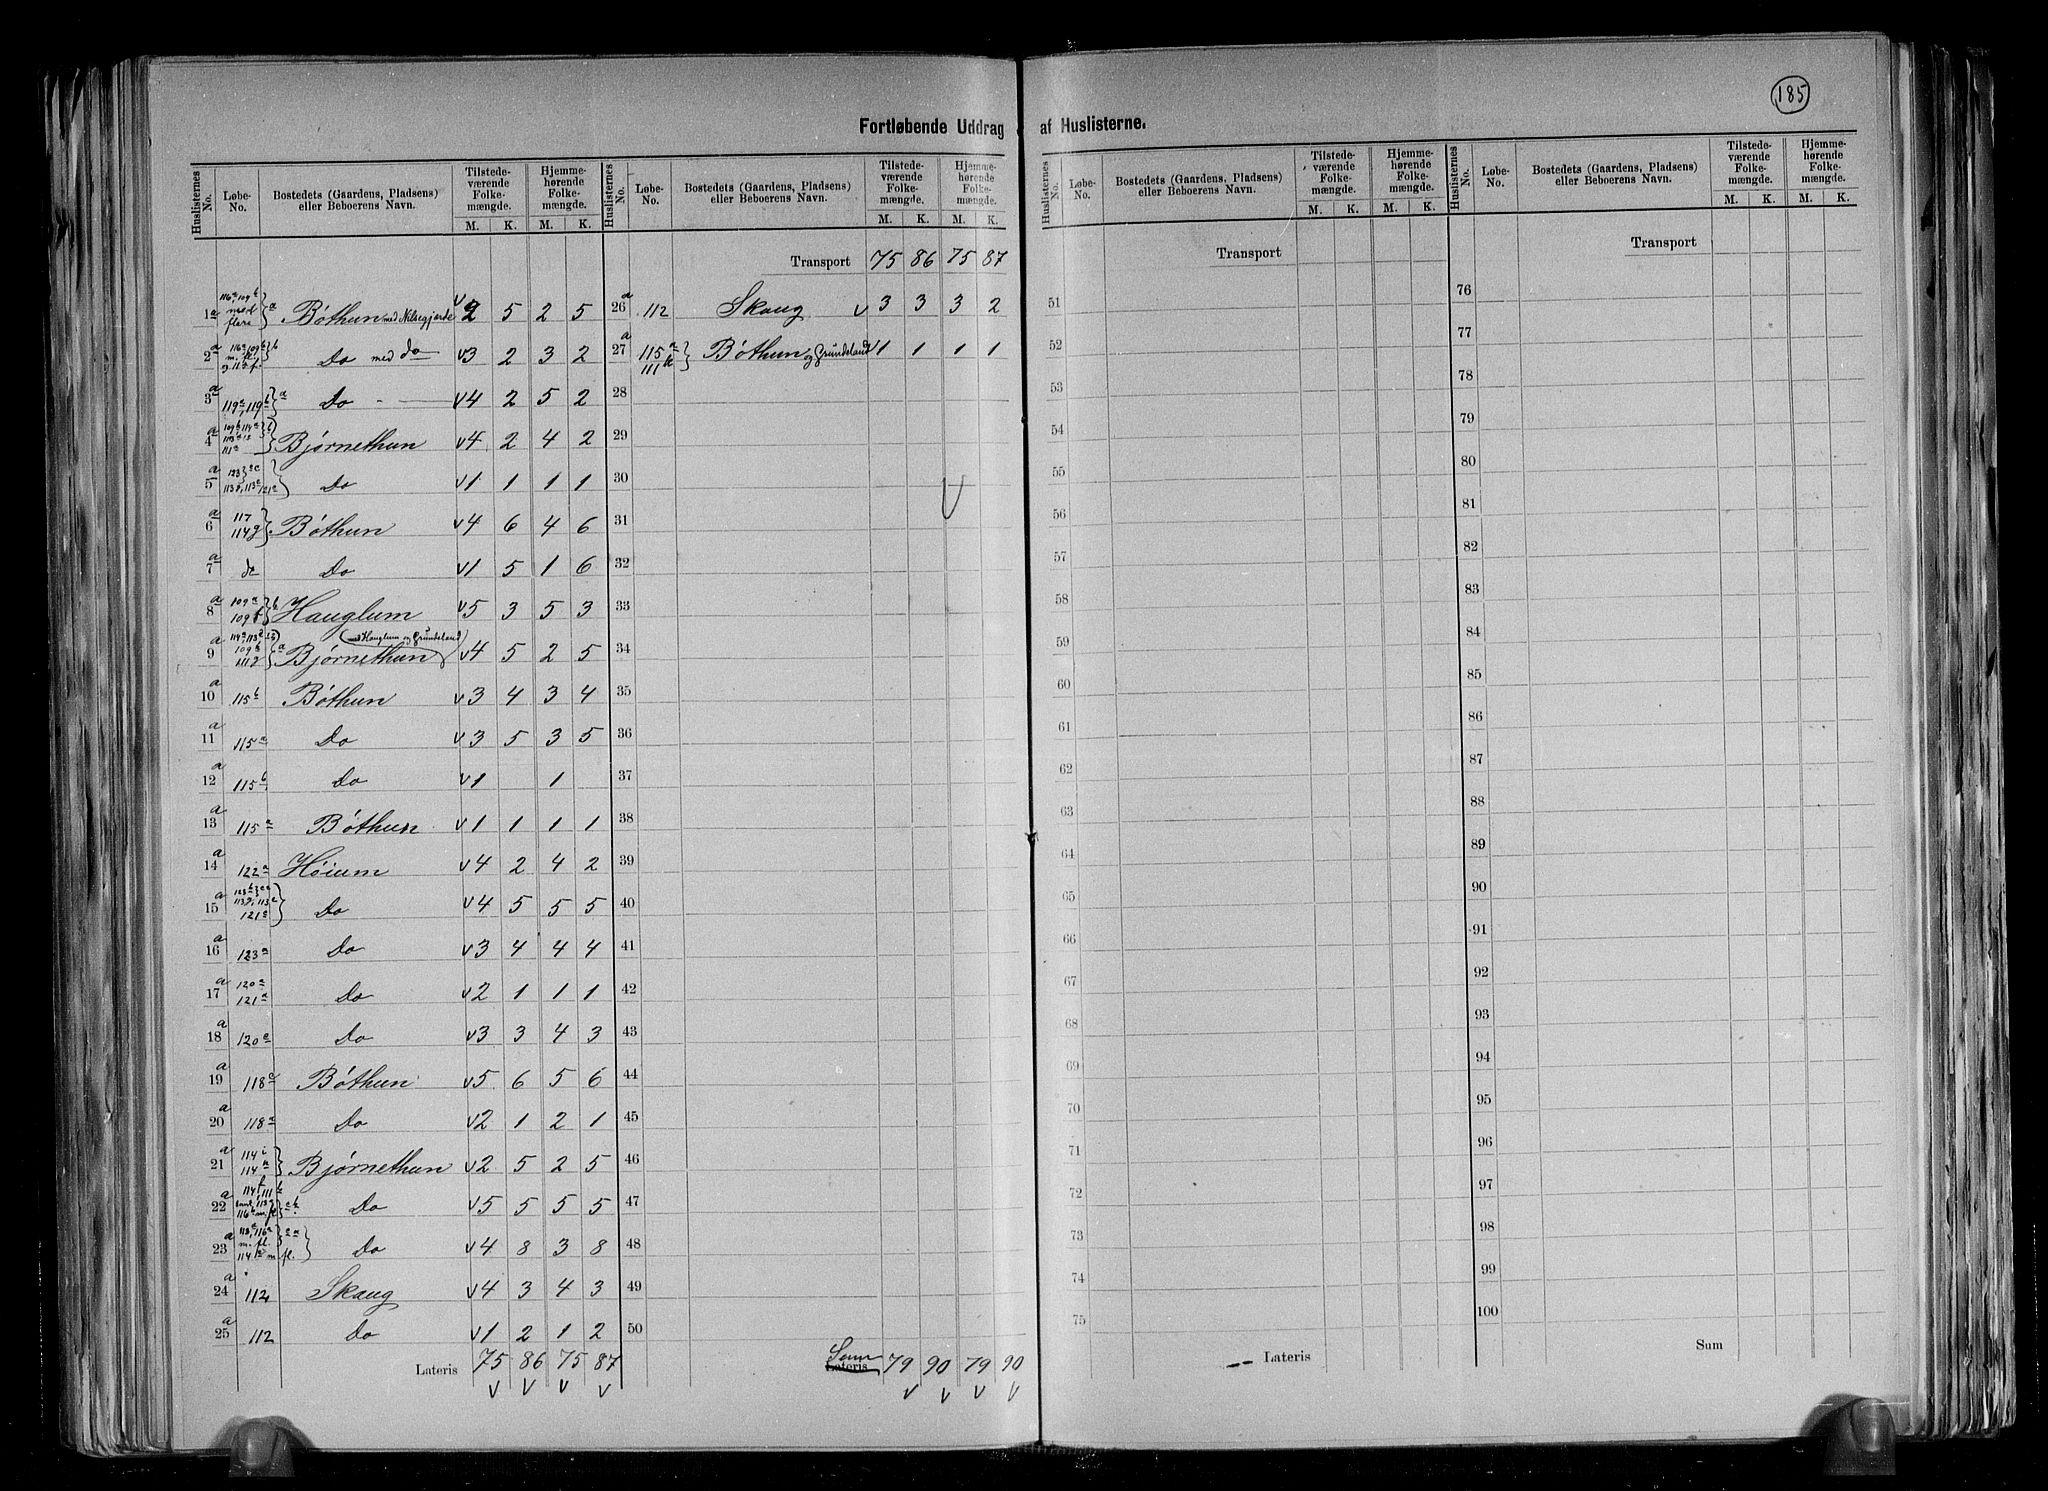 185
Fortløbende Uddrag af Huslisterne.
Huslisternes No. Løbe-No. Bostedets (Gaardens, Pladsens) eller Beboerens Navn. Tilstedeværende Folkemængde. Hjemmehørende Folkemængde.
M. K. M. K.
1a Bøthun med Nilsegjerde v 2 5 2 5
2a Do med do v 3 2 3 2
3a 119a, 119b a Do - — v 4 2 5 2
4a Bjørnethun v 4 2 4 2
5a Do v 1 1 1 1
6a 117 114g Bøthun v 4 6 4 6
7a do Do v 1 5 1 6
8a 109a 109f b Hauglum v 5 3 5 3
9a Bjørnethun (med Hauglum og Grundeland) v 4 5 2 5
10a 115b Bøthun v 3 4 3 4
11a 115a Do v 3 5 3 5
12a 115b Do v 1 1
13a 115a Bøthun v 1 1 1 1
14a 122a Høium v 4 2 4 2
15a 121a Do v 4 5 5 5
16a 123a Do v 3 4 4 4
17a 120a 121a Do v 2 1 1 1
18a 120a Do v 3 3 4 3
19a 118a Bøthun v 5 6 5 6
20a 118a Do v 2 1 2 1
21a 114i 114k Bjørnethun v 2 5 2 5
22a Do v 5 5 5 5
23a Do v 4 8 3 8
24a 112 Skaug v 4 3 4 3
25a 112 Do v 1 2 1 2
Lateris 75 86 75 87
v v v v
Huslisternes No. Løbe-No. Bostedets (Gaardens, Pladsens) eller Beboerens Navn. Tilstedeværende Folkemængde. Hjemmehørende Folkemængde.
M. K. M. K.
Transport 75 86 75 87
26a 112 Skaug v 3 3 3 2
27a 115a 111k Bøthun og Grundeland v 1 1 1 1
28
29
30
31
32
33
34
35
36
37
38
39
40
41
42
43
44
45
46
47
48
49
50
Sum Lateris 79 90 79 90
v v v v
Huslisternes No. Løbe-No. Bostedets (Gaardens, Pladsens) eller Beboerens Navn. Tilstedeværende Folkemængde. Hjemmehørende Folkemængde.
M. K. M. K.
Transport
51
52
53
54
55
56
57
58
59
60
61
62
63
64
65
66
67
68
69
70
71
72
73
74
75
Lateris
Huslisternes No. Løbe-No. Bostedets (Gaardens, Pladsens) eller Beboerens Navn. Tilstedeværende Folkemængde. Hjemmehørende Folkemængde.
M. K. M. K.
Transport
76
77
78
79
80
81
82
83
84
85
86
87
88
89
90
91
92
93
94
95
96
97
98
99
100
Sum